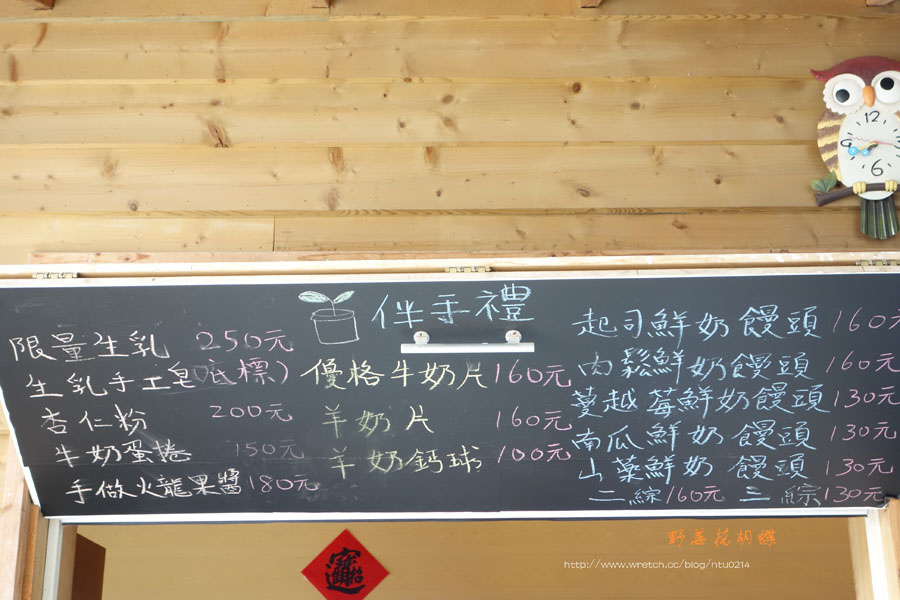 伴手禮
限量生乳 250元
生乳手工皂(底標)
杏仁粉 200元
牛奶蛋捲 150元
手做火龍果醬 180元
優格牛奶片 160元
羊奶片 160元
羊奶鈣球 100元
起司鮮奶饅頭 160元
肉鬆鮮奶饅頭 160元
蔓越莓鮮奶饅頭 130元
南瓜鮮奶饅頭 130元
山藥鮮奶饅頭 130元
二綜160元 三綜130元
12
3
6
野薑花蝴蝶
http://www.wretch.cc/blog/ntu0214